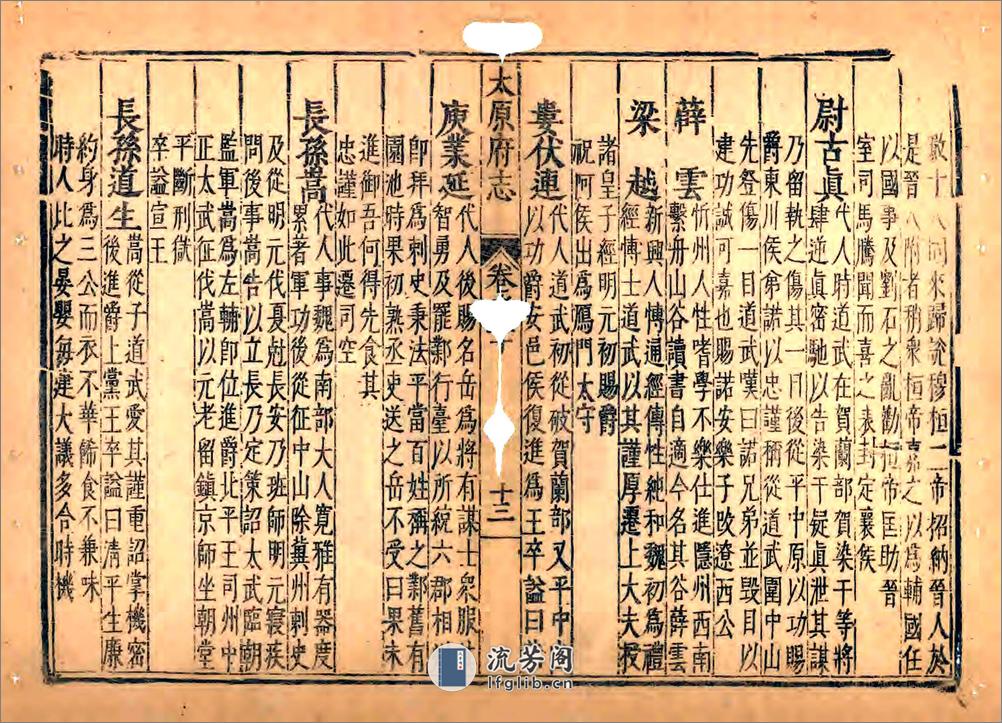 數十人同來歸說穆桓二帝招納晉人於
是晉人附者稍衆桓帝嘉之以爲輔國任
以國事及劉石之亂勸桓帝匡助晉
室司馬騰聞而喜之表封定襄侯
尉古眞代人時道武在賀蘭部賀染干等將
肆逆眞密馳以告染干疑眞泄其謀
乃留執之傷其一目後從平中原以功賜
爵東川侯弟諾以忠謹稱從道武圍中山
先登傷一目道武嘆曰諾兄弟並毀目以
建功誠可嘉也賜諾安樂子
薛雲忻州人性嗜學不樂仕進隱州西南
繫舟山谷讀書自適今名其谷薛雲
梁越新興人愽通經傳性純和魏初爲禮
經愽士道武以其謹厚遷上大夫授
諸皇子經明元初賜爵
祝阿侯出爲鴈門太守
婁伏連代人道武初從破賀蘭部又平中
以功爵安邑侯復進爲王卒謚曰
太原府志
卷
十三
庾業延代人後賜名岳爲將有謀士衆服其
智勇及罷鄴行臺以所統六郡相
卽拜爲刺史秉法平當百姓稱之鄴舊有
園池時果初熟丞吏送之岳不受曰果未
進御吾何得先食其
忠謹如此遷司空
長孫嵩代人事魏爲南部大人寬雅有器度
累著軍功後從征中山除冀州刺史
及從明元伐長安乃班師明元寢疾
問後事嵩告以立長乃定策詔太武臨朝
監軍嵩爲左輔卽位進爵北平王司州中
正太武征伐嵩以元老留鎮京師坐朝堂
平斷刑獄
卒謚宣王
長孫道生嵩從子道武愛其謹重詔掌機密
後進爵上黨王卒謚曰靖平生廉
約身爲三公而衣不華餙食不兼味
時人比之晏嬰每建大議多合時機
流芳阁
lfglib.cn